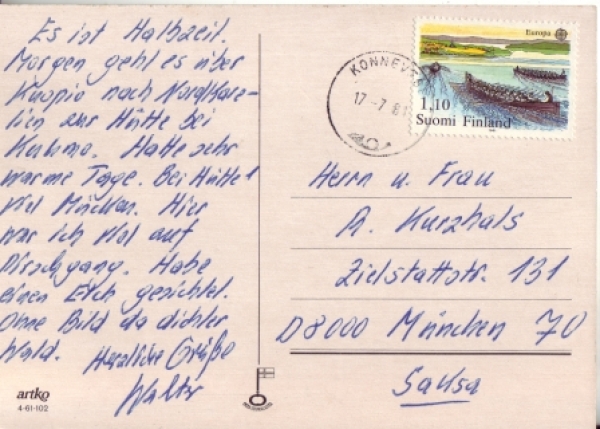 Es ist Halbzeit.
Morgen geht es über
Kuopio nach Nordkare-
lien zur Hütte bei
Kuhmo. Hatte sehr
warme Tage. Bei Hütte 1
viel Mücken. Hier
war ich viel auf
Pirschgang. Habe
einen Elch gesichtet.
Ohne Bild da dichter
Wald. Herzliche Grüße
Walter
artko
4-61-102
Europa
1,10
Suomi Finland
17-7 81
Herrn u. Frau
A. Kurzhals
Zielstattstr. 131
D8000 München 70
Saksa